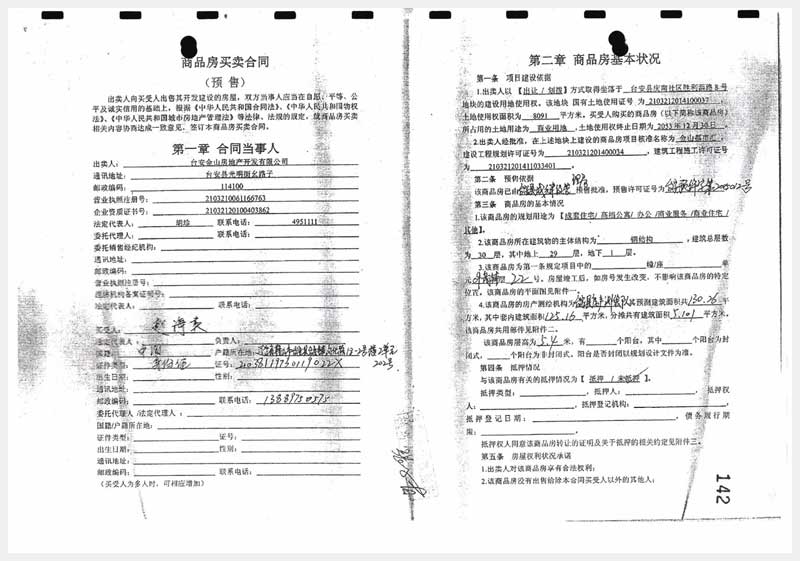 商品房买卖合同
（预 售）
出卖人向买受人出售其开发建设的房屋，双方当事人应当在自愿、平等、公
平及诚实信用的基础上，根据《中华人民共和国合同法》、《中华人民共和国物权
法》、《中华人民共和国城市房地产管理法》等法律、法规的规定，就商品房买卖
相关内容协商达成一致意见，签订本商品房买卖合同。
第一章 合同当事人
出卖人： 台安金山房地产开发有限公司
通讯地址： 台安县光明街幺路子
邮政编码： 114100
营业执照注册号： 2103210061166763
企业资质证书号： 21032120100403862
法定代表人： 胡 联系电话： 4951111
委托代理人： 联系电话：
委托销售经纪机构：
通讯地址：
邮政编码：
营业执照注册号：
经纪机构备案证明号：
法定代表人： 联系电话：
买受人：
法定代表人： 负责人：
国籍： 中国 户籍所在地：
证件类型： 身份证 证号： 21038119750119022X
出生日期： 性别：
通讯地址：
邮政编码： 联系电话： 13889750575
委托代理人/法定代理人：
国籍/户籍所在地：
证件类型： 证号：
出生日期： 性别：
通讯地址：
邮政编码： 联系电话：
（买受人为多人时，可相应增加）
第二章 商品房基本状况
第一条 项目建设依据
1.出卖人以【出让/划拨】方式取得坐落于 台安县庆南社区胜利西路8号
地块的建设用地使用权。该地块 国有土地使用证号 为 2103212014100037，
土地使用权面积为 8091 平方米。买受人购买的商品房（以下简称该商品房）
所占用的土地用途为 商业用地，土地使用权终止日期为 2053年12月30日。
2.出卖人经批准，在上述地块上建设的商品房项目核准名称为 金山都市汇，
建设工程规划许可证号为 210321201400034，建筑工程施工许可证号
为 210321201411033401。
第二条 预售依据
该商品房已由 预售批准，预售许可证号为
第三条 商品房的基本情况
1.该商品房的规划用途为【成套住宅/高档公寓/办公/商业服务/商业住宅/
其他】。
2.该商品房所在建筑物的主体结构为 钢结构，建筑总层数
为 30 层，其中地上 29 层，地下 1 层。
3.该商品房为第一条规定项目中的 幢/座 单
元 层 22 号。房屋竣工后，如房号发生改变，不影响该商品房的特定
位置。该商品房的平面图见附件一。
4.该商品房的房产测绘机构为 其预测建筑面积共 130.26 平
方米，其中套内建筑面积 125.16 平方米，分摊共有建筑面积 5.101 平方米。
该商品房共用部位见附件二。
该商品房层高为 5.4 米，有 个阳台，其中 个阳台为封
闭式， 个阳台为非封闭式。阳台是否封闭以规划设计文件为准。
第四条 抵押情况
与该商品房有关的抵押情况为【抵押/未抵押】。
抵押类型： ，抵押人： ，抵押权
人： ，抵押登记机构： ，
抵押登记日期： ，债务履行期
限： 。
抵押权人同意该商品房转让的证明及关于抵押的相关约定见附件三。
第五条 房屋权利状况承诺
1.出卖人对该商品房享有合法权利；
2.该商品房没有出售给除本合同买受人以外的其他人；
142